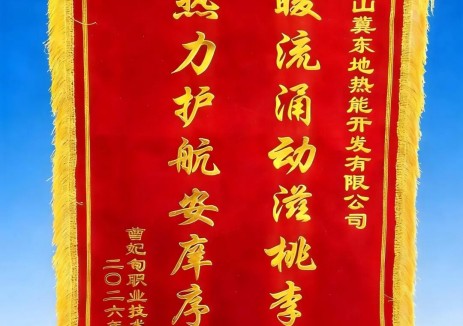 山冀东地热能开发有限公司
暖流涌动滋桃李
热力护航安庠序
曹妃甸职业技术
二〇二六年